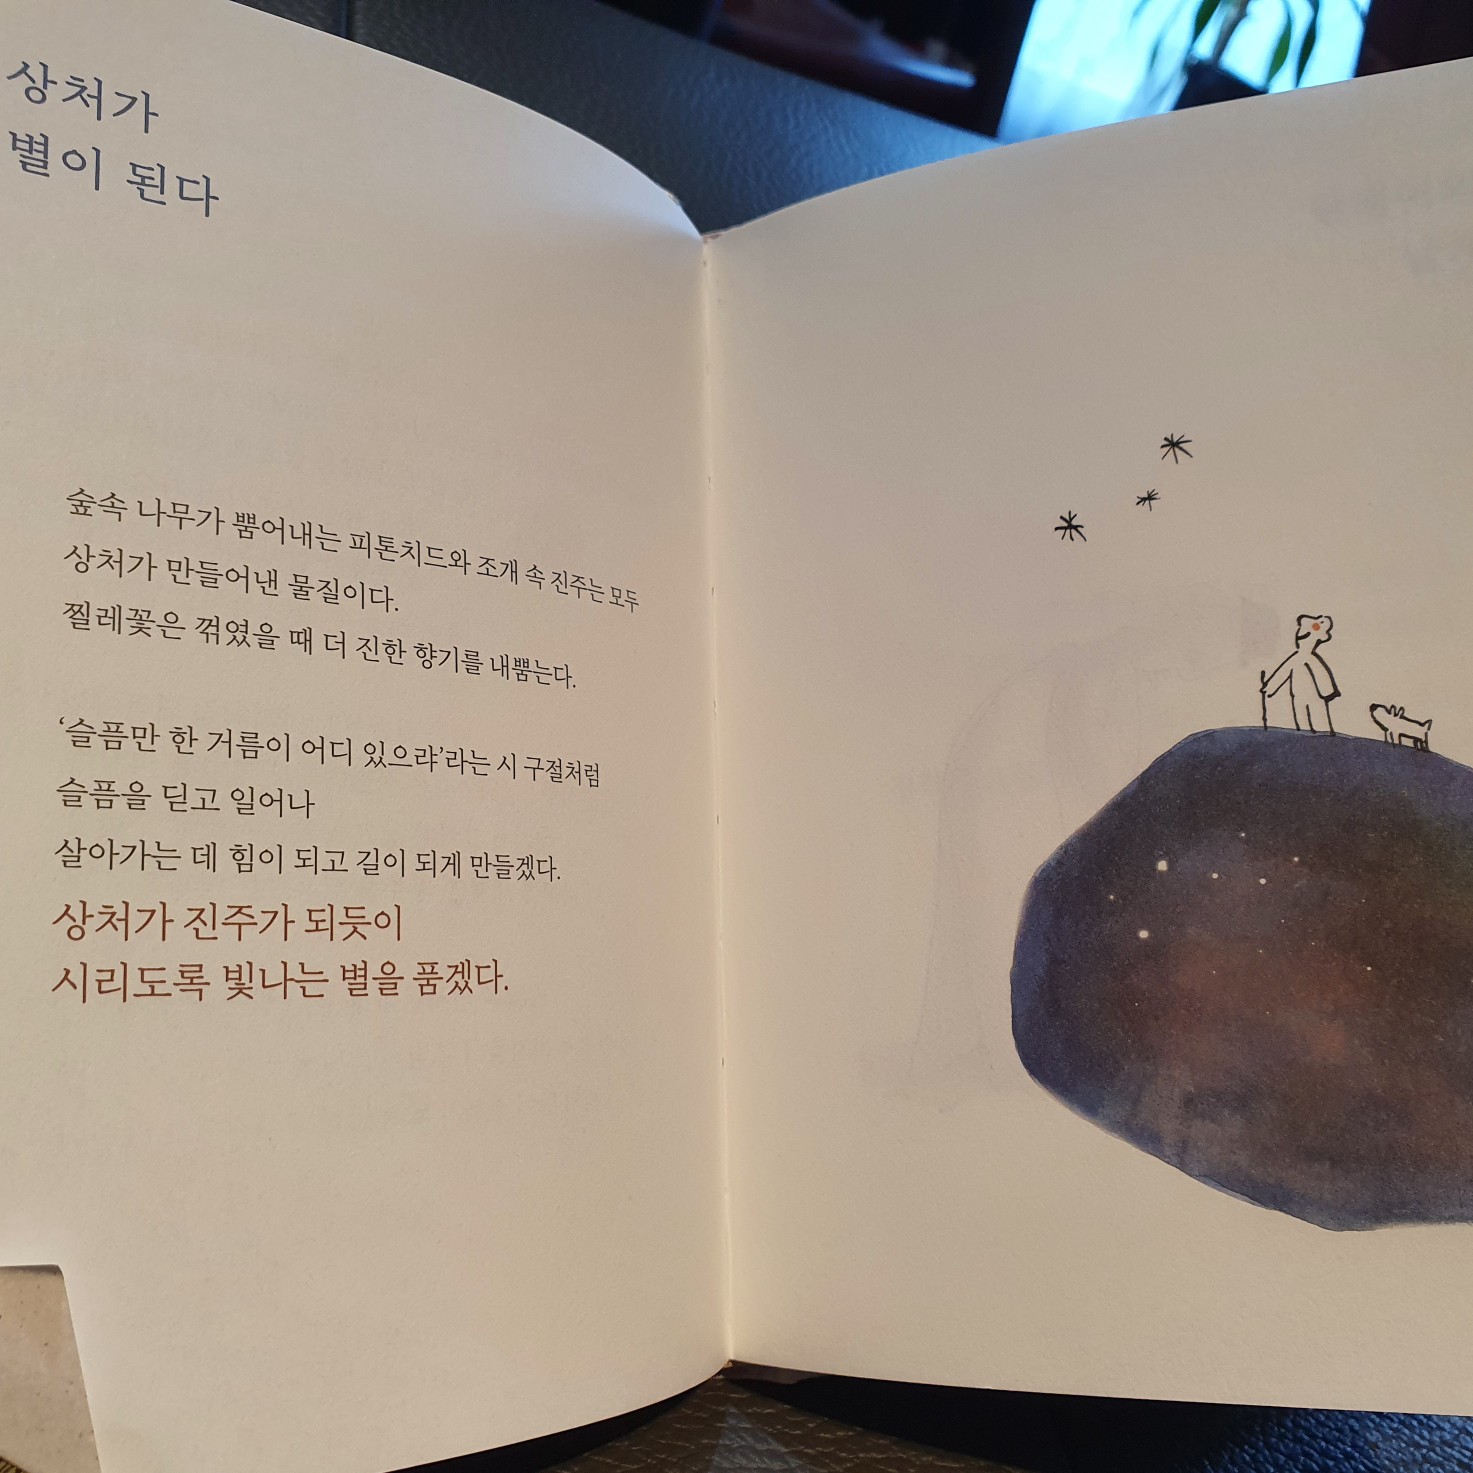 상처가
별이 된다
숲속 나무가 뿜어내는 피톤치드와 조개 속 진주는 모두
상처가 만들어낸 물질이다.
찔레꽃은 꺾였을 때 더 진한 향기를 내뿜는다.
‘슬픔만 한 거름이 어디 있으랴’라는 시 구절처럼
슬픔을 딛고 일어나
살아가는 데 힘이 되고 길이 되게 만들겠다.
상처가 진주가 되듯이
시리도록 빛나는 별을 품겠다.